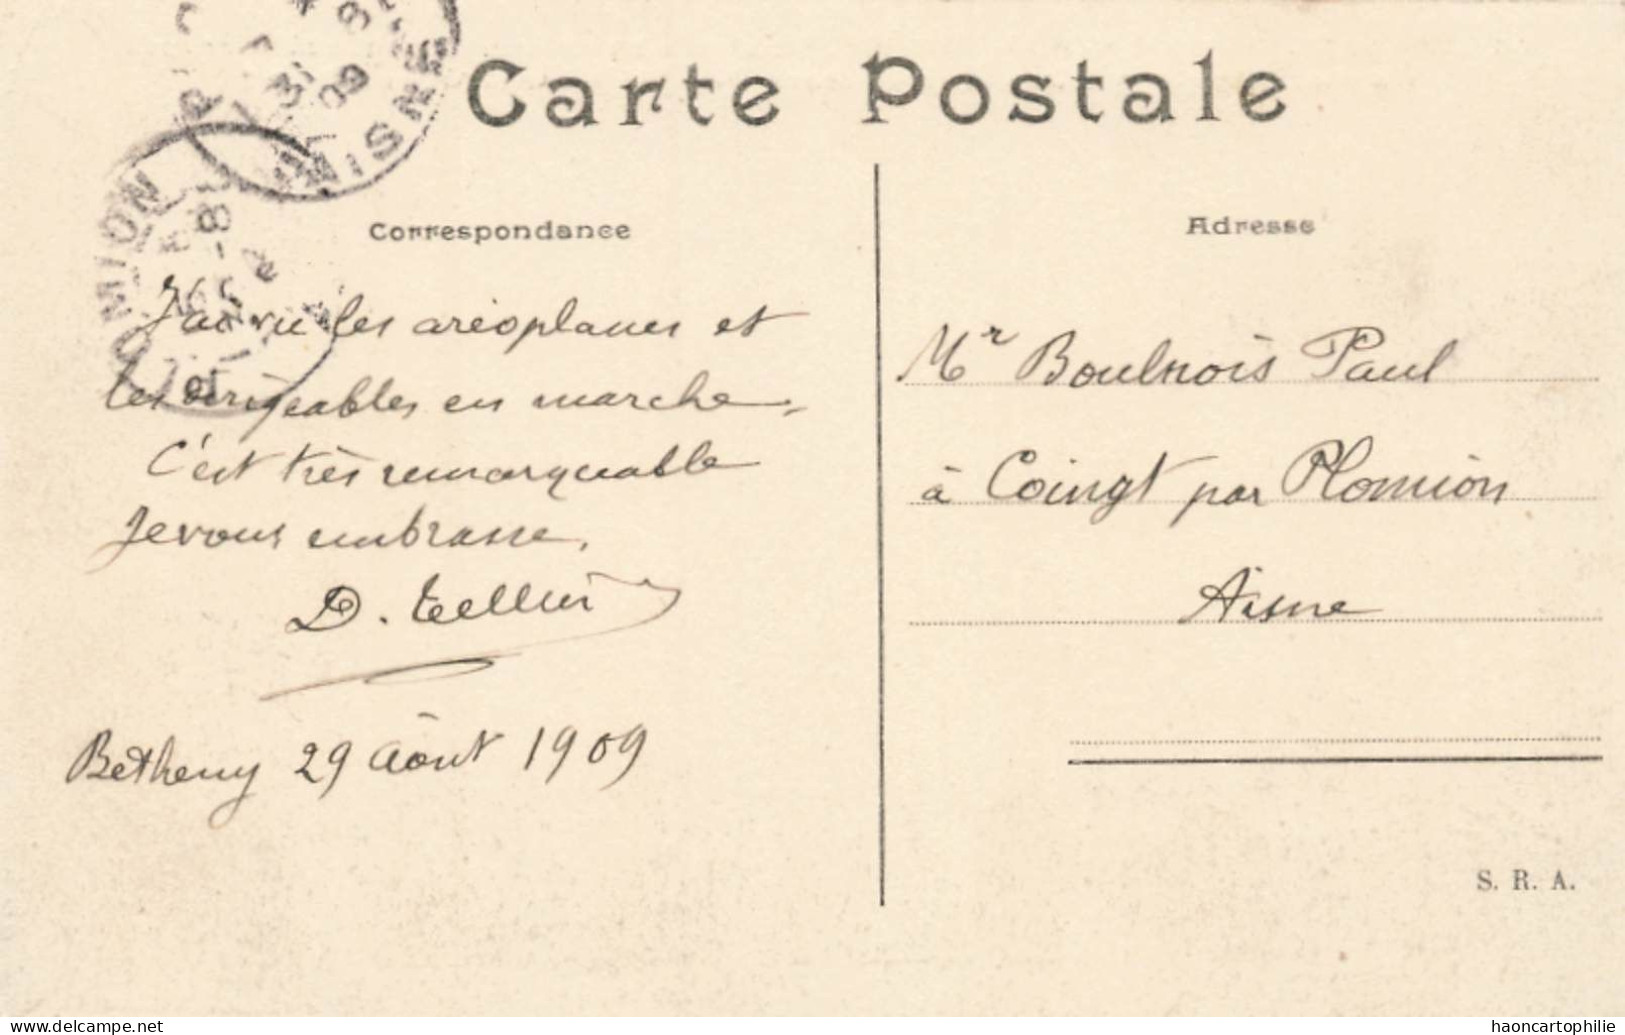 Carte Postale
Correspondance
J'ai vu les aréoplanes et
les dirigeables en marche,
C'est très remarquable
Je vous embrasse.
D. Tellier
Betheny 29 août 1909
Adresse
Mr Boulnois Paul
à Coingt par Plomion
Aisne
S. R. A.
AISNE
31
09
PLOMION
www.delcampe.net
haoncartophilie